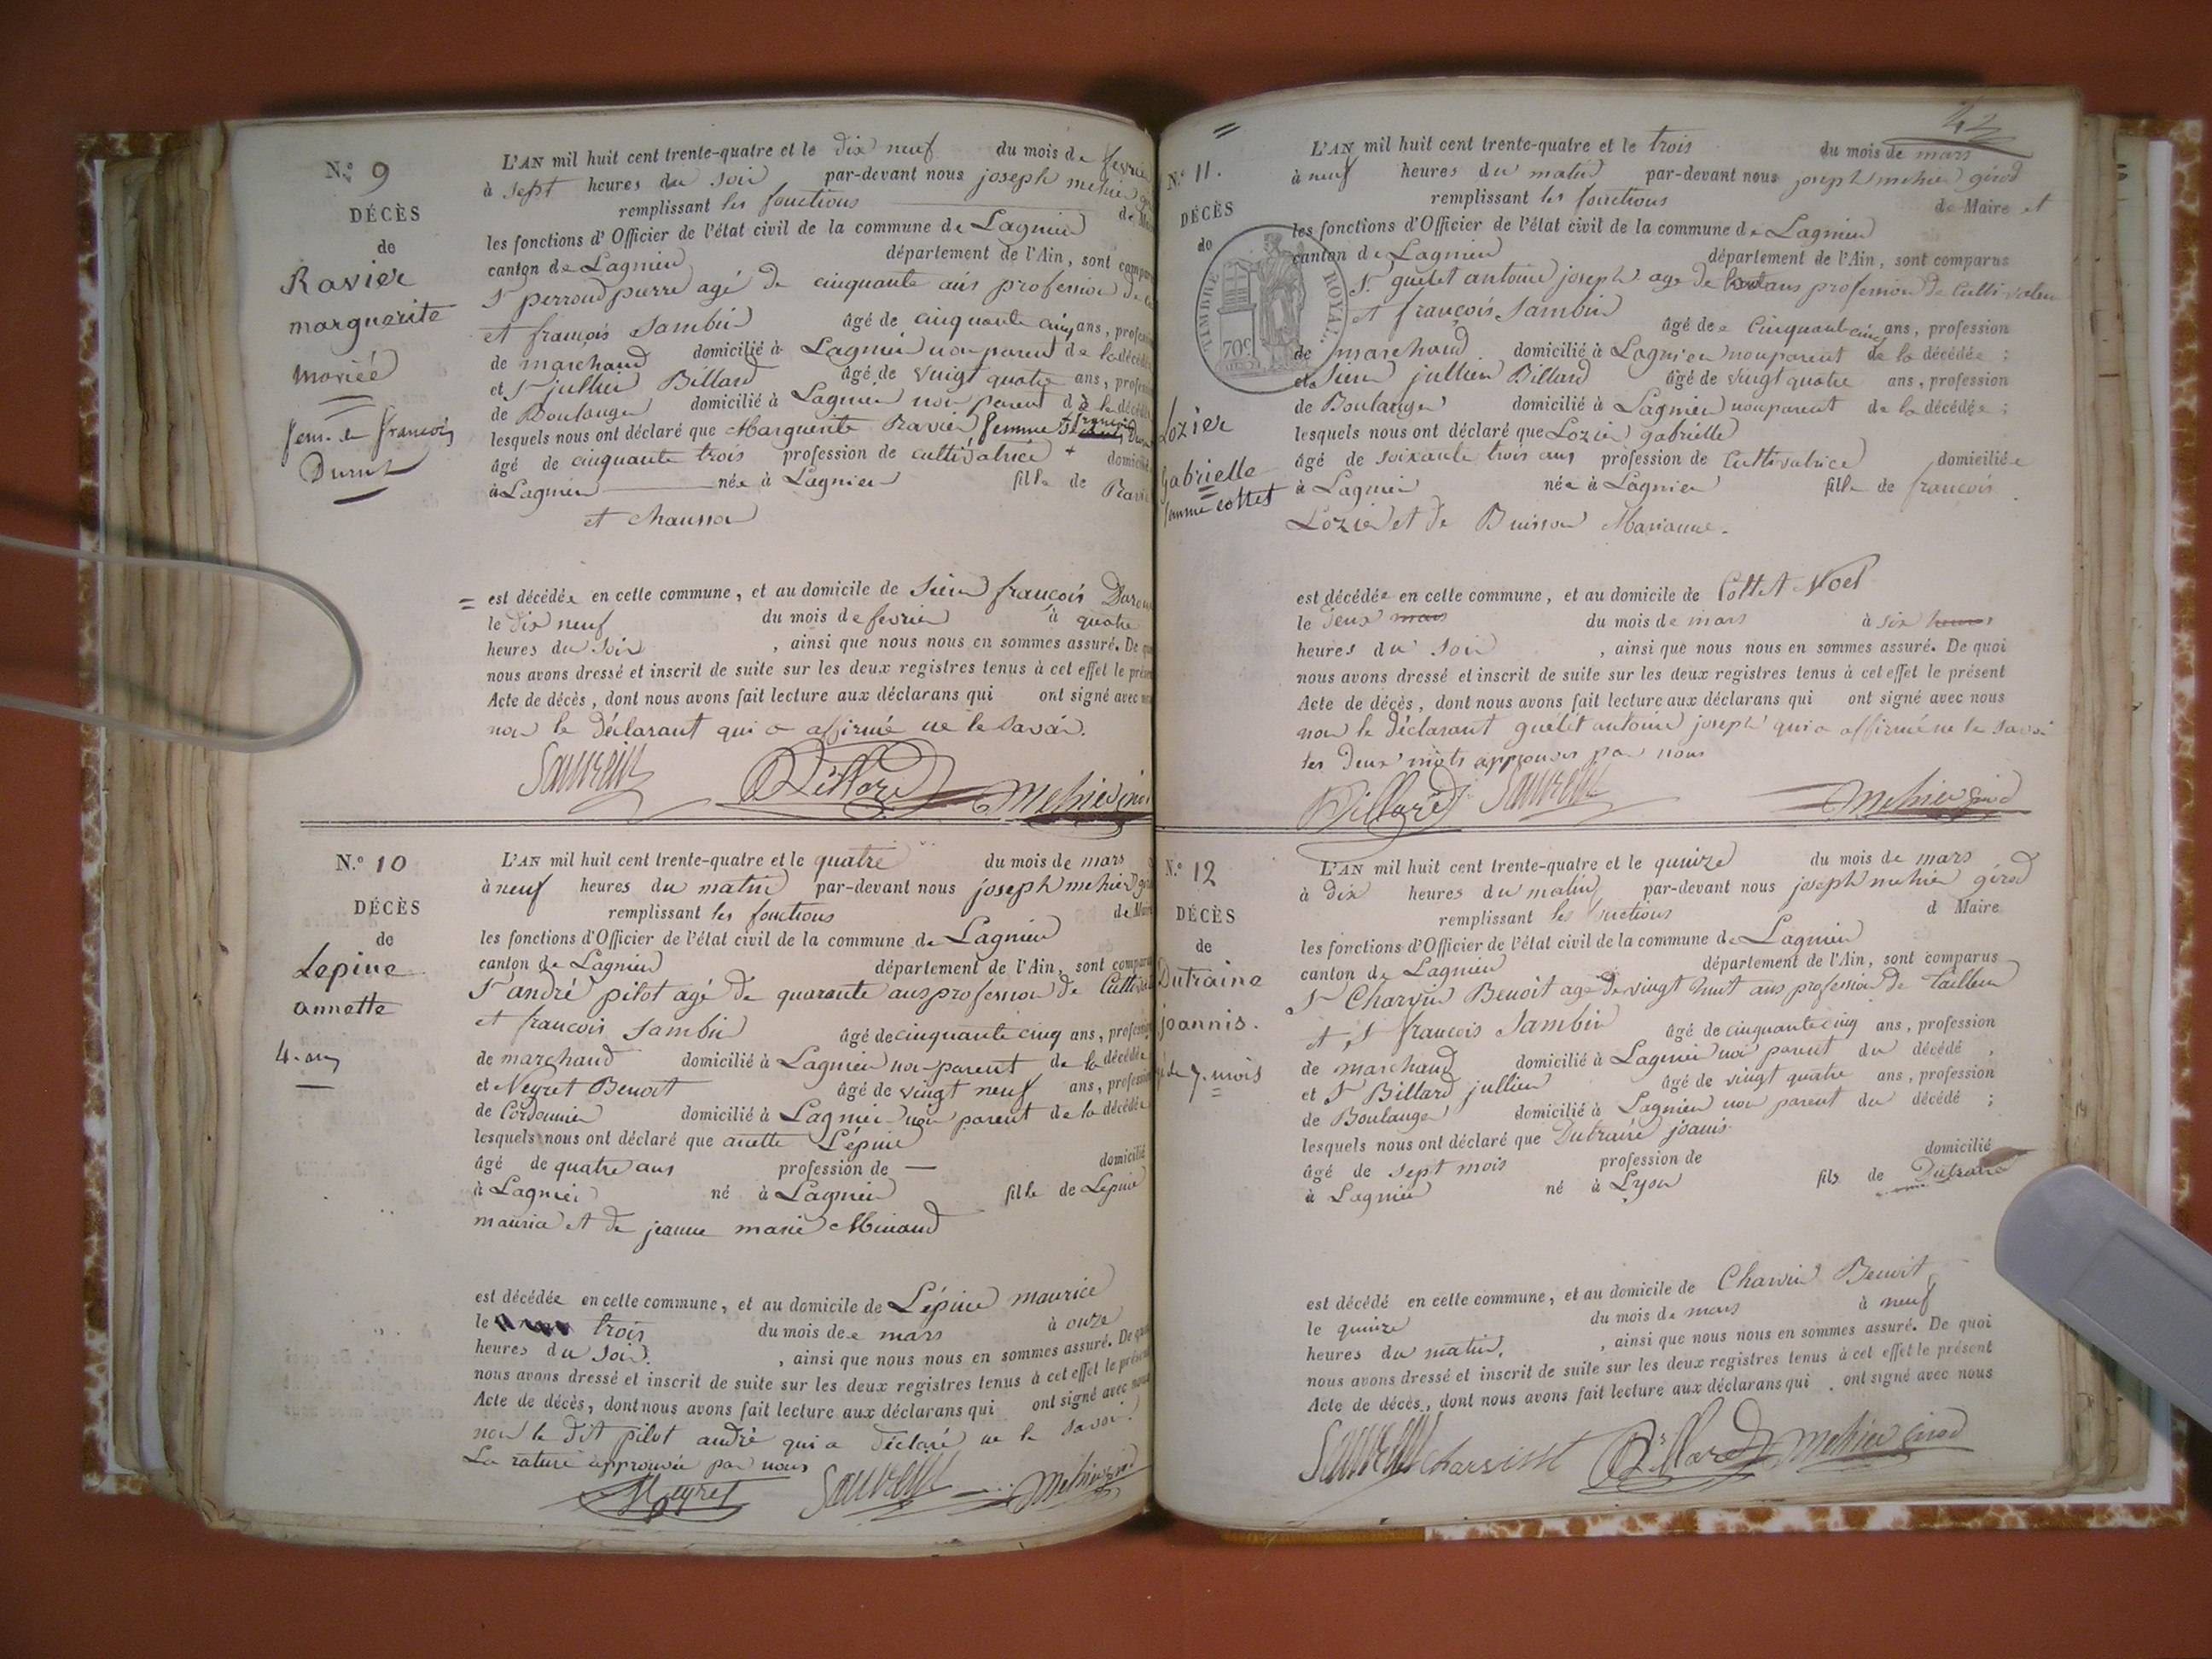 N.° 9
DÉCÈS
de
Ravier
marguerite
mariée
fem. de francois
Durut
L'AN mil huit cent trente-quatre et le dix neuf du mois de fevrier
à sept heures du soir par-devant nous joseph mehier
remplissant les fonctions de
les fonctions d'Officier de l'état civil de la commune de Lagnieu
canton de Lagnieu département de l'Ain, sont
Sr perroud pierre agé de cinquante ans profession de
et françois Sambin âgé de cinquante cinq ans,
de marchand domicilié à Lagnieu non parent de la
et Sr jullien Billard âgé de vingt quatre ans,
de Boulanger domicilié à Lagnieu non parent de la
lesquels nous ont déclaré que Marguerite Ravier femme
âgé de cinquante trois profession de cultivatrice +
à Lagnieu née à Lagnieu fille de
et chausson
= est décédée en cette commune, et au domicile de Sieur françois
le dix neuf du mois de fevrier à quatre
heures du soir, ainsi que nous nous en sommes assuré. De
nous avons dressé et inscrit de suite sur les deux registres tenus à cet effet le
Acte de décès, dont nous avons fait lecture aux déclarans qui ont signé avec
non le déclarant qui a affirmé ne le savoir.
Billard
N.° 10
DÉCÈS
de
Lepine
annette
4. ans
L'AN mil huit cent trente-quatre et le quatre du mois de mars
à neuf heures du matin par-devant nous joseph mehier
remplissant les fonctions de
les fonctions d'Officier de l'état civil de la commune de Lagnieu
canton de Lagnieu département de l'Ain, sont
Sr andré pilot agé de quarante ans profession de
et francois Sambin âgé de cinquante cinq ans,
de marchand domicilié à Lagnieu non parent de la décédée
et Neyret Benoit âgé de vingt neuf ans,
de Cordonnier domicilié à Lagnieu non parent de la décédée
lesquels nous ont déclaré que anette Lépine
âgé de quatre ans profession de — domicilié
à Lagnieu né à Lagnieu fille de Lepine
maurice et de jeanne marie
est décédée en cette commune, et au domicile de Lépine maurice
le trois du mois de mars à onze
heures du soir, ainsi que nous nous en sommes assuré. De
nous avons dressé et inscrit de suite sur les deux registres tenus à cet effet le
Acte de décès, dont nous avons fait lecture aux déclarans qui ont signé avec nous
non le dit pilot andré qui a déclaré ne le savoir.
La rature approuvée par nous
Neyret
42
N.° 11.
DÉCÈS
de
TIMBRE ROYAL
70c
Lozier
Gabrielle
femme cottet
L'AN mil huit cent trente-quatre et le trois du mois de mars
à neuf heures du matin par-devant nous joseph mehier girod
remplissant les fonctions de Maire et
les fonctions d'Officier de l'état civil de la commune de Lagnieu
canton de Lagnieu département de l'Ain, sont comparus
Sr guelet antoine joseph age de ans profession de Cultivateur
et françois Sambin âgé de Cinquante cinq ans, profession
de marchand domicilié à Lagnieu non parent de la décédée ;
et Sieur jullien Billard âgé de vingt quatre ans, profession
de Boulanger domicilié à Lagnieu non parent de la décédée ;
lesquels nous ont déclaré que Lozier gabrielle
âgé de soixante trois ans profession de Cultivatrice domiciliée
à Lagnieu née à Lagnieu fille de francois
Lozier et de Buisson Marianne.
est décédée en cette commune, et au domicile de Cottet Noel
le deux mars du mois de mars à six heures
heures du soir, ainsi que nous nous en sommes assuré. De quoi
nous avons dressé et inscrit de suite sur les deux registres tenus à cet effet le présent
Acte de décès, dont nous avons fait lecture aux déclarans qui ont signé avec nous
non le déclarant guelet antoine joseph qui a affirmé ne le savoir
les deux mots approuvés par nous
Billard mehier girod
N.° 12
DÉCÈS
de
Dutraine
joannis.
de 7. mois
L'AN mil huit cent trente-quatre et le quinze du mois de mars
à dix heures du matin par-devant nous joseph mehier girod
remplissant les fonctions d Maire
les fonctions d'Officier de l'état civil de la commune de Lagnieu
canton de Lagnieu département de l'Ain, sont comparus
Sr Charvin Benoit age de vingt huit ans profession de Tailleur
et Sr francois Sambin âgé de cinquante cinq ans, profession
de marchand domicilié à Lagnieu non parent du décédé ,
et Sr Billard jullien âgé de vingt quatre ans, profession
de Boulanger domicilié à Lagnieu non parent du décédé ;
lesquels nous ont déclaré que Dutraine joanis
âgé de sept mois profession de domicilié
à Lagnieu né à Lyon fils de Dutraine
est décédé en cette commune, et au domicile de Charvin Benoit
le quinze du mois de mars à neuf
heures du matin, ainsi que nous nous en sommes assuré. De quoi
nous avons dressé et inscrit de suite sur les deux registres tenus à cet effet le présent
Acte de décès, dont nous avons fait lecture aux déclarans qui ont signé avec nous
Billard mehier girod